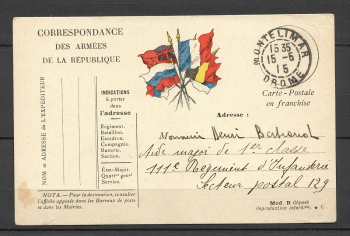 CORRESPONDANCE
DES ARMÉES
DE LA RÉPUBLIQUE
MONTELIMAR
15 35
15 - 5
15
DROME
Carte - Postale
en franchise
NOM et ADRESSE de L'EXPÉDITEUR
INDICATIONS
à porter
dans
l'adresse
Régiment.
Bataillon.
Escadron.
Compagnie.
Batterie.
Section.
État-Major.
Quartr génl
Service.
NOTA. — Pour la destination, consulter
l'affiche apposée dans les Bureaux de poste
et dans les Mairies.
Adresse :
Monsieur Henri
Aide major de 1er classe
111e Régiment d'Infanterie
Secteur postal 129
Mod. B déposé
Reproduction interdite. C